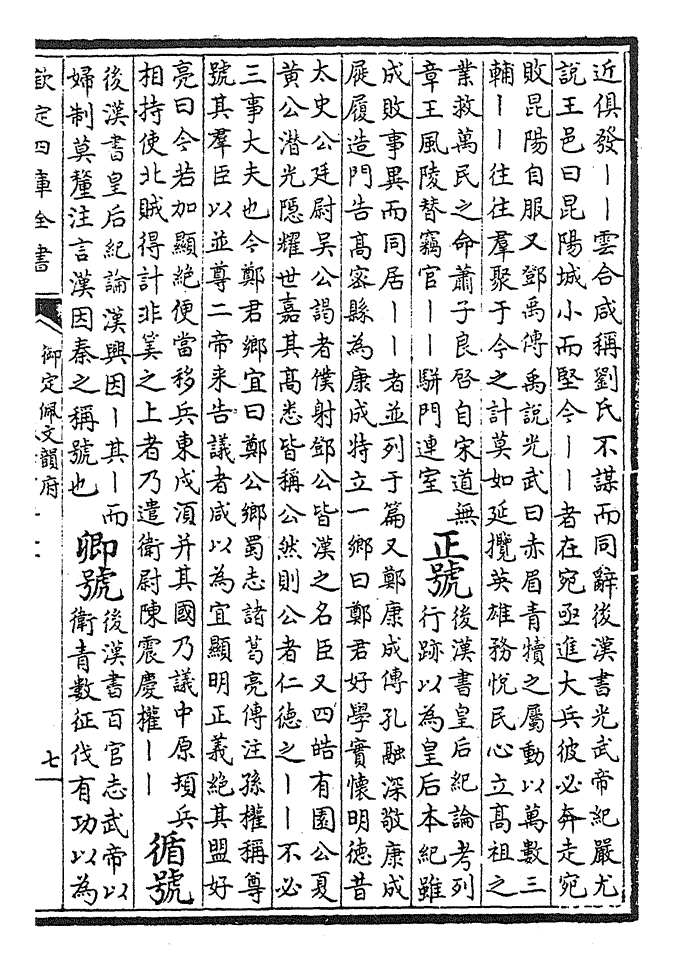 近俱發丨丨雲合咸稱劉氏不謀而同辭後漢書光武帝紀嚴尤
說王邑曰昆陽城小而堅今丨丨者在宛亟進大兵彼必奔走宛
敗昆陽自服又鄧禹傳禹說光武曰赤眉青犢之屬動以萬數三
輔丨丨往往羣聚于今之計莫如延攬英雄務悅民心立高祖之
業救萬民之命蕭子良啓自宋道無
章王風陵替竊官丨丨駢門連室
正號
後漢書皇后紀論考列
行跡以為皇后本紀雖
成敗事異而同居丨丨者並列于篇又鄭康成傳孔融深敬康成
屣履造門告高密縣為康成特立一鄉曰鄭君好學實懷明德昔
太史公廷尉吳公謁者僕射鄧公皆漢之名臣又四皓有園公夏
黃公潛光隱耀世嘉其高悉皆稱公然則公者仁德之丨丨不必
三事大夫也今鄭君鄉宜曰鄭公鄉蜀志諸葛亮傳注孫權稱尊
號其羣臣以並尊二帝來告議者咸以為宜顯明正義絕其盟好
亮曰今若加顯絕便當移兵東戍須并其國乃議中原頓兵
相持使北賊得計非筭之上者乃遣衛尉陳震慶權丨丨
循號
後漢書皇后紀論漢興因丨其丨而
婦制莫釐注言漢因秦之稱號也
卿號
後漢書百官志武帝以
衛青數征伐有功以為
欽定四庫全書
御定佩文韻府
七